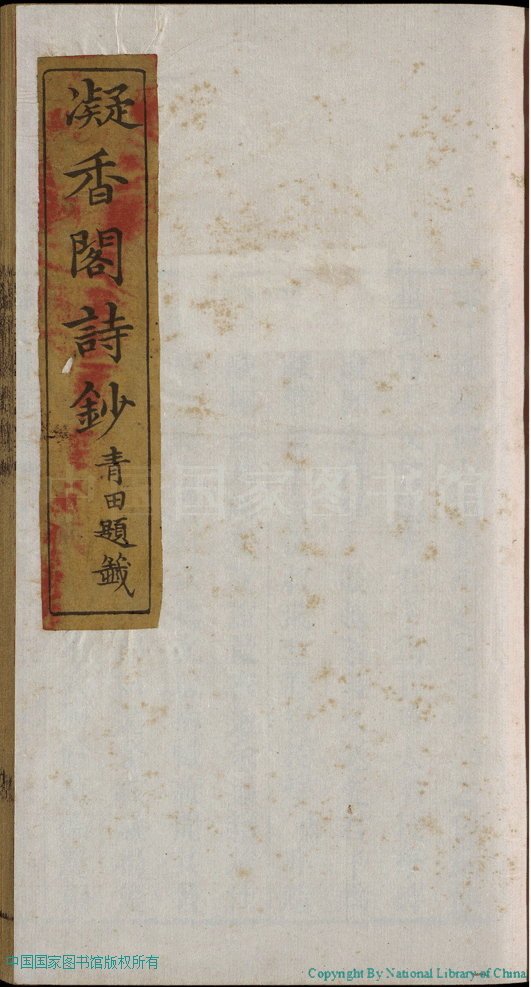 凝香閣詩鈔
青田題籤
中国国家图书馆
中国国家图书馆版权所有
Copyright By National Library of China